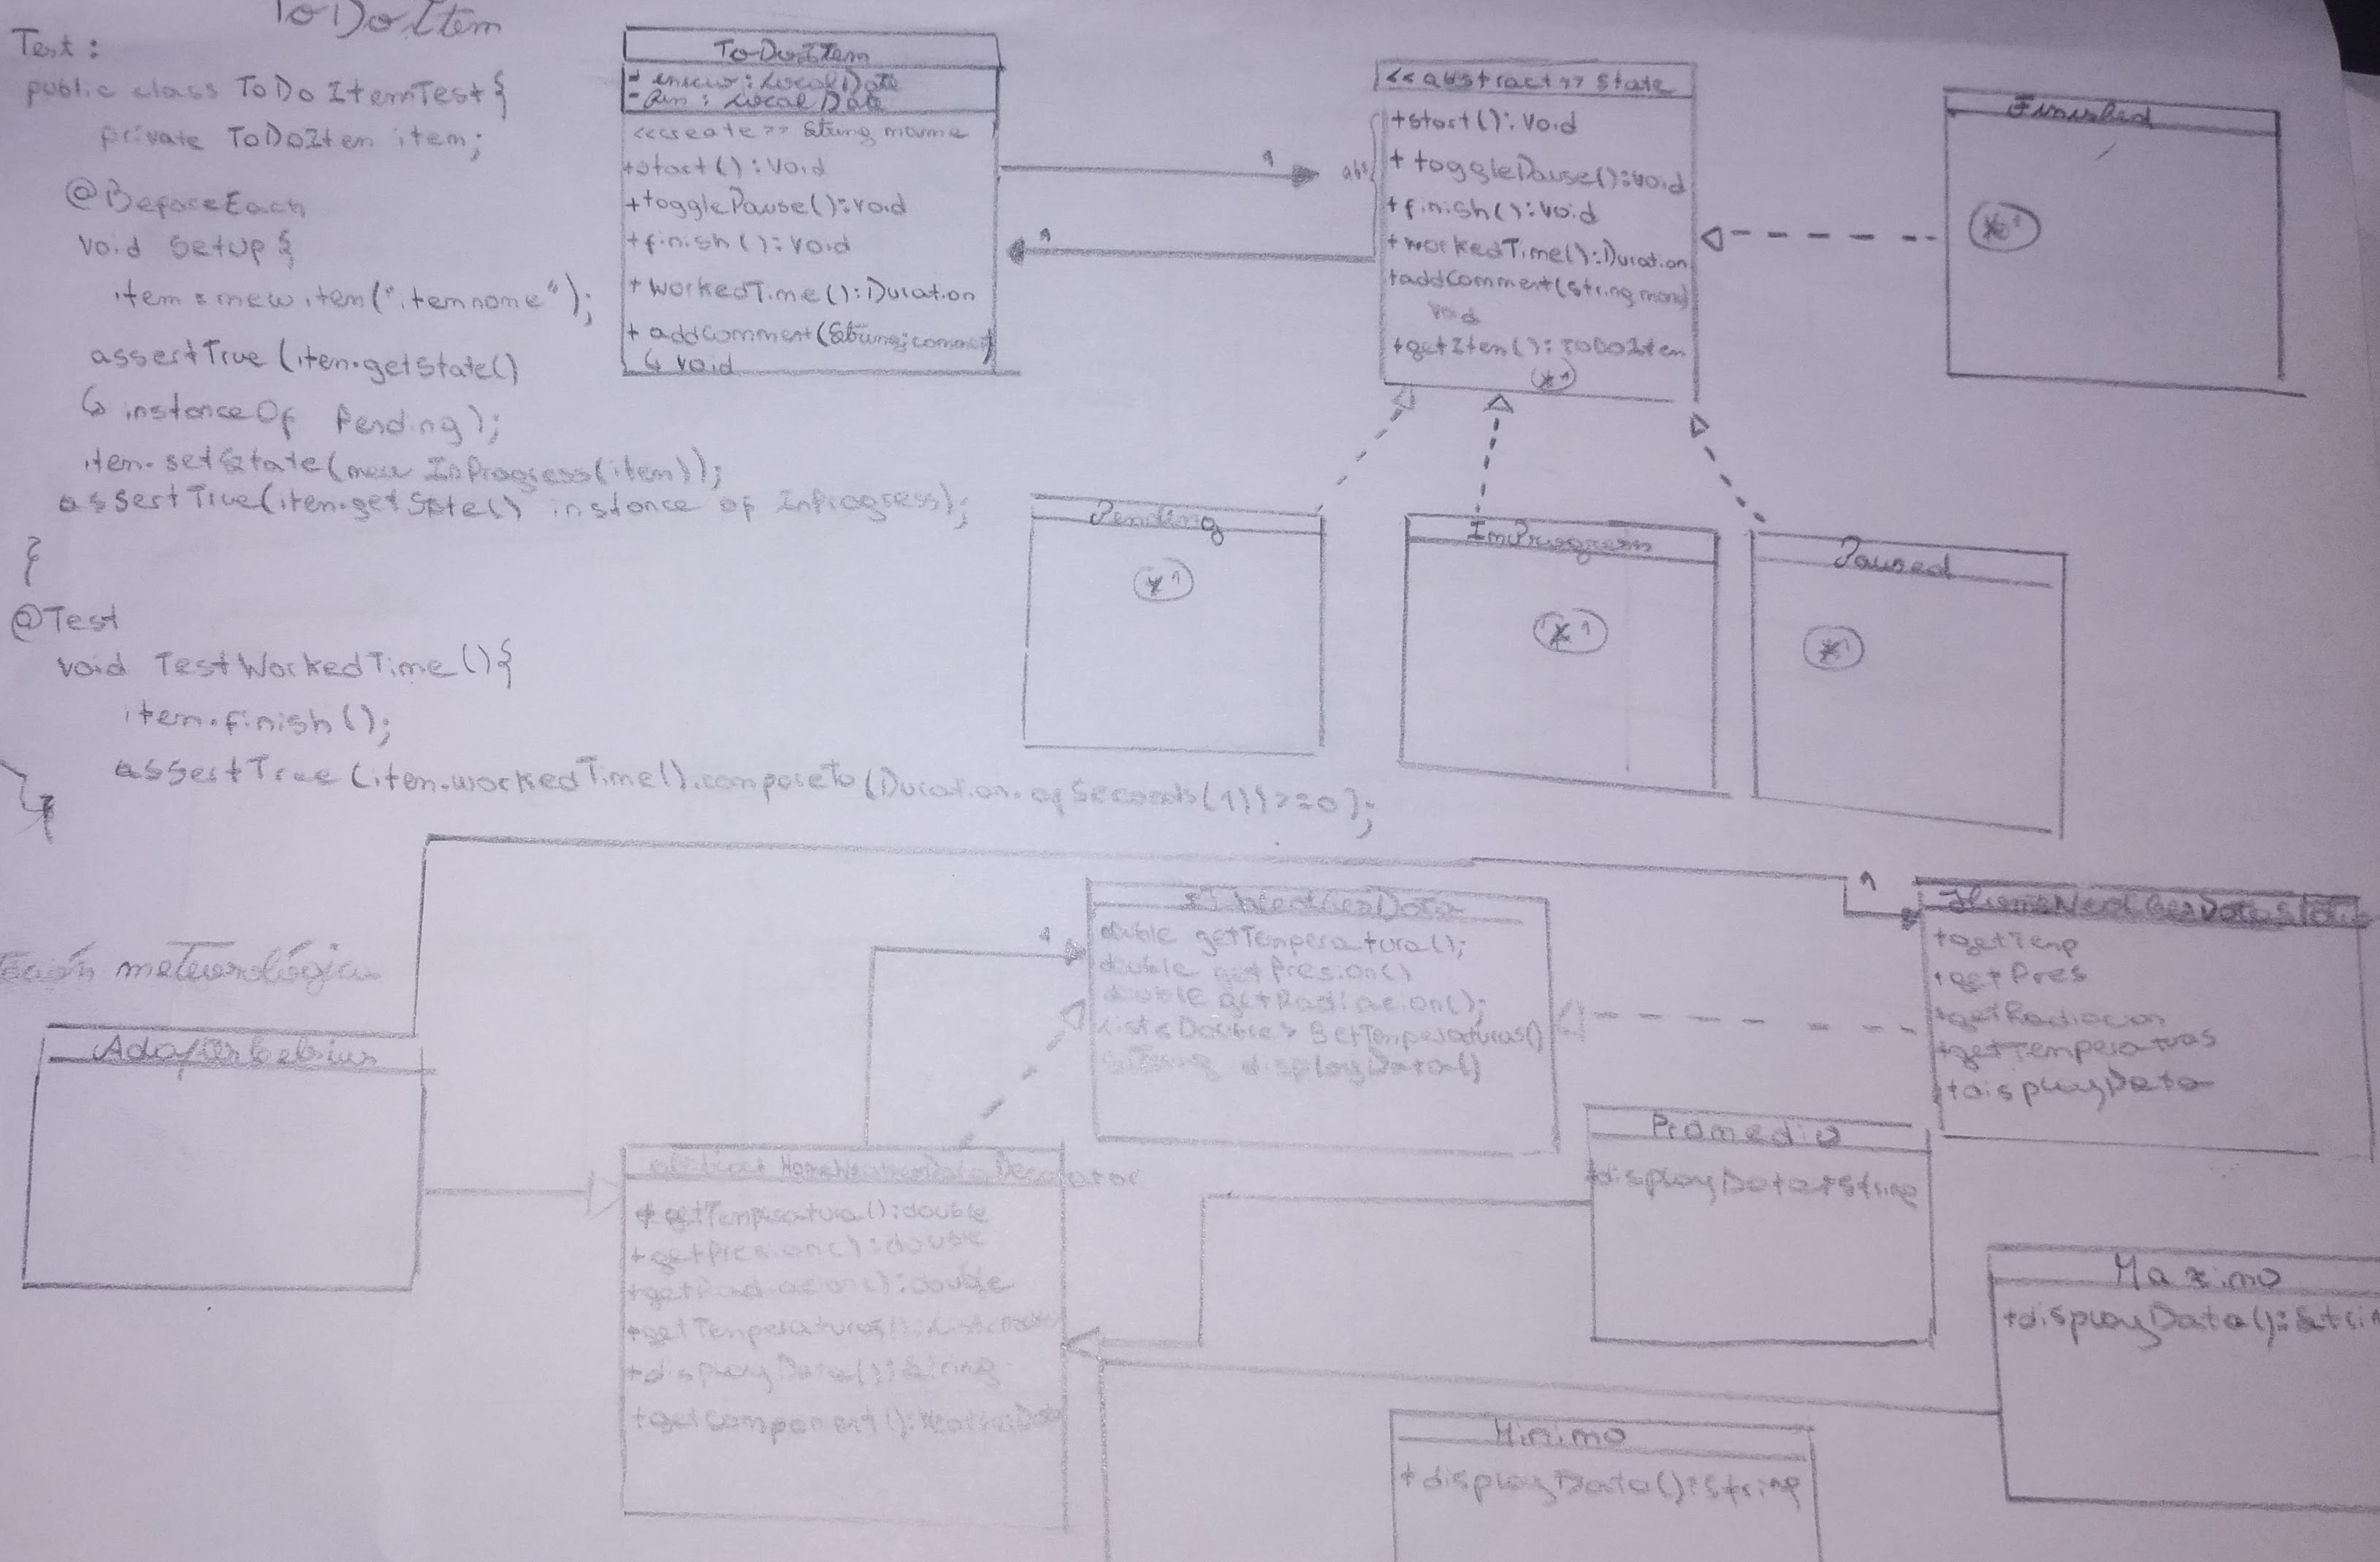 ToDoItem
Test:
public class ToDoItemTest{
private ToDoIten item;
@BeforeEach
void Setup{
item = new item("itemnome");
assertTrue (iten.getState()
↳ instanceOf Pending);
item.setState(new InProgress(item));
assertTrue(iten.getState() instance of InProgress);
}
@Test
void TestWorkedTime(){
item.finish();
assertTrue (iten.workedTime().compareTo(Duration.ofSeconds(1))>=0);
}
ToDoItem
- inicio : LocalDate
- fin : LocalDate
<<create>> String name
+start(): void
+togglePause():void
+finish():void
+workedTime():Duration
+ addComment(String:coment)
↳ void
1
1
<<abstract>> State
abs
+start(): void
+ togglePause():void
+finish():void
+workedTime():Duration
+addComment(String
void
+getIten(): ToDoIten
*1
Finished
*1
Pending
*1
InProgress
*1
Paused
*1
ación meteorológica
AdapterCelsius
1
WeatherData
double getTemperatura();
double getPresion()
double getRadiacion();
List<Double> GetTemperaturas()
String displayData()
1
HomeWeatherDataStatio
+getTemp
+getPres
+getRadiacion
+getTemperaturas
+displayData
abstract HomeWeatherDataDecorator
+getTemperatura():double
+getPresion():double
+getRadiacion():double
+getTemperaturas():List
+displayData():String
+getComponent():WeatherData
Promedio
+displayData:String
Maximo
+displayData():Strin
Minimo
+displayData():String